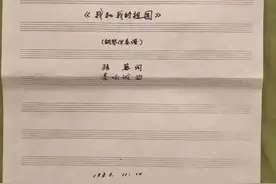 《我和我的祖国》
(钢琴伴奏谱)
张藜词
秦咏诚曲